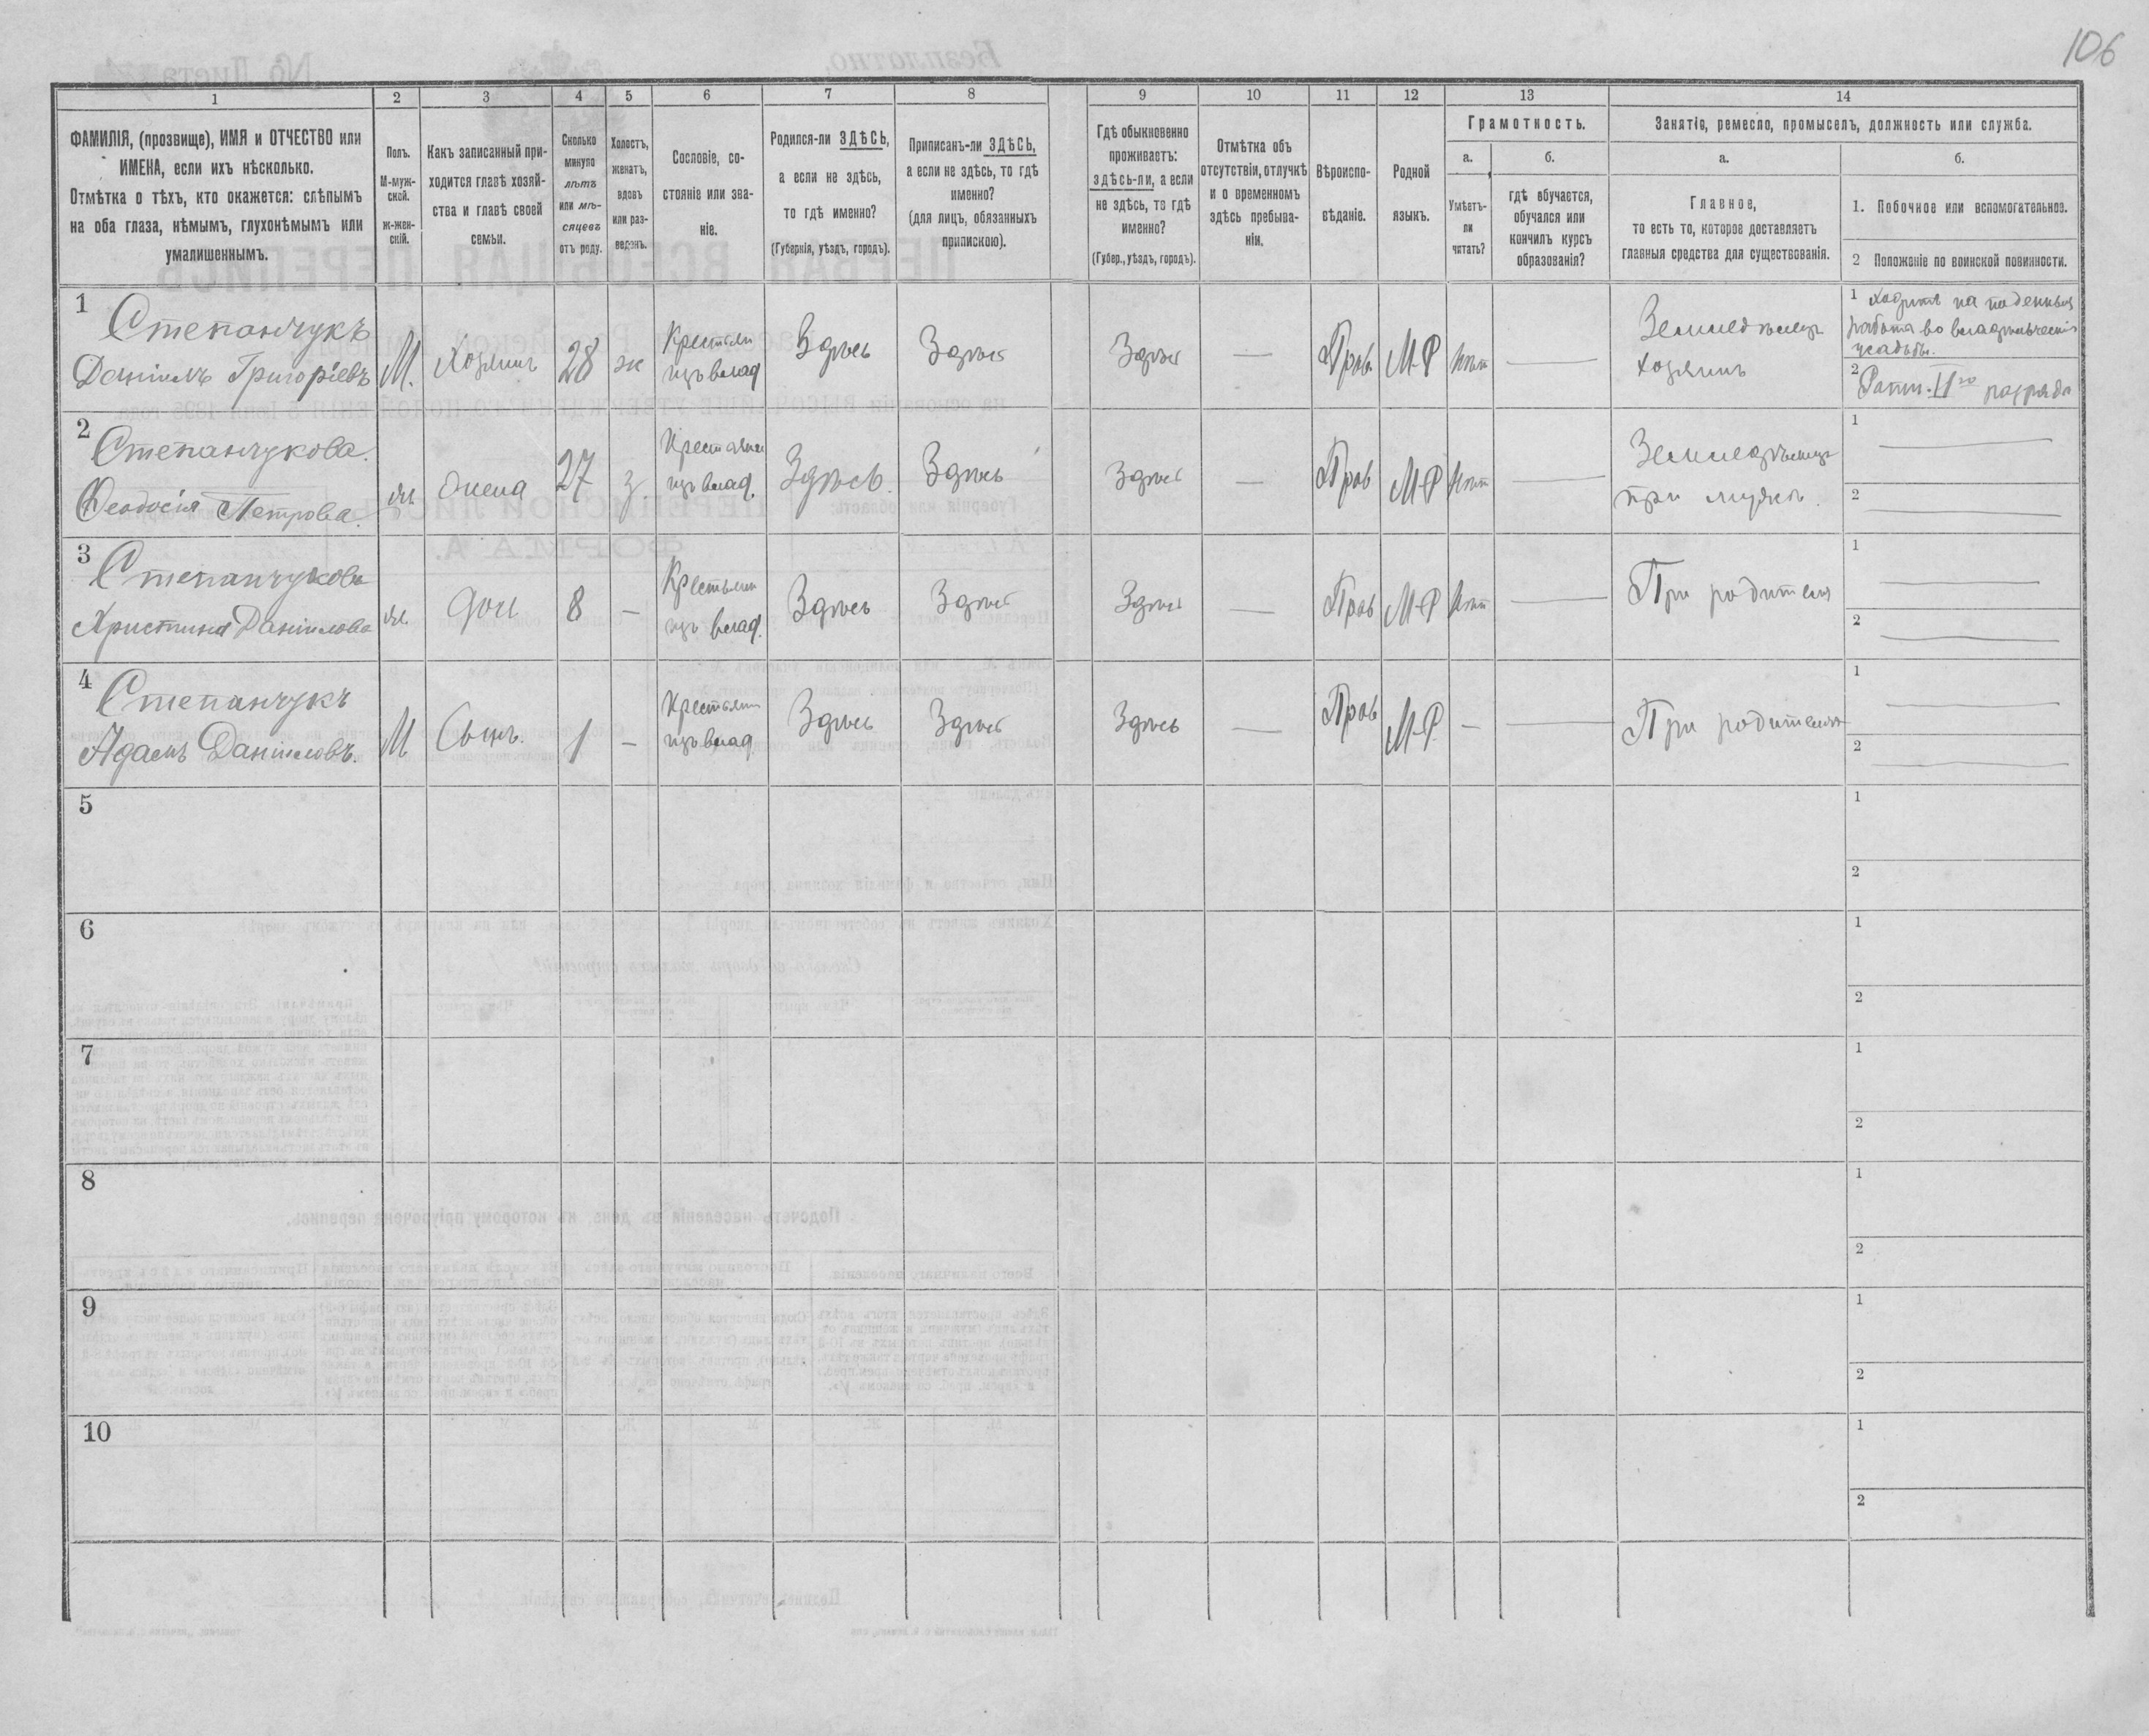 106
1
2
3
4
5
6
7
8
9
10
11
12
13
14
ФАМИЛІЯ, (прозвище), ИМЯ и ОТЧЕСТВО или
ИМЕНА, если ихъ нѣсколько.
Отмѣтка о тѣхъ, кто окажется: слѣпымъ
на оба глаза, нѣмымъ, глухонѣмымъ или
умалишеннымъ.
Полъ.
М-муж-
ской.
Ж-жен-
скій.
Какъ записанный при-
ходится главѣ хозяй-
ства и главѣ своей
семьи.
Сколько
минуло
лѣтъ
или мѣ-
сяцевъ
отъ роду.
Холостъ,
женатъ,
вдовъ
или раз-
веденъ.
Сословіе, со-
стояніе или зва-
ніе.
Родился-ли ЗДѢСЬ,
а если не здѣсь,
то гдѣ именно?
(Губернія, уѣздъ, городъ).
Приписанъ-ли ЗДѢСЬ,
а если не здѣсь, то гдѣ
именно?
(для лицъ, обязанныхъ
припискою).
Гдѣ обыкновенно
проживаетъ:
здѣсь-ли, а если
не здѣсь, то гдѣ
именно?
(Губер., уѣздъ, городъ).
Отмѣтка объ
отсутствіи, отлучкѣ
и о временномъ
здѣсь пребыва-
ніи.
Вѣроиспо-
вѣданіе.
Родной
языкъ.
Грамотность.
а.
Умѣетъ-
ли
читать?
б.
гдѣ обучается,
обучался или
кончилъ курсъ
образованія?
Занятіе, ремесло, промыселъ, должность или служба.
а.
Главное,
то есть то, которое доставляетъ
главныя средства для существованія.
б.
1. Побочное или вспомогательное.
2 Положеніе по воинской повинности.
1
Степанчукъ
Даніилъ Григоріевъ
М.
Хозяинъ
28
ж
Крестьян
изъ влад
Здѣсь
Здѣсь
Здѣсь
—
Прав.
М-Р
Нѣтъ
—
Земледѣлецъ
хозяинъ
1 Ходитъ на поденныя
работы во владѣльческія
усадьбы.
2 Ратн. II го разряда
2
Степанчукова
Феодосія Петрова.
Ж
Жена
27
з.
Крестьянк
изъ влад.
Здѣсь
Здѣсь
Здѣсь
—
Прав
М-Р
Нѣтъ
—
Земледѣлецъ
при мужѣ
1 —
2 —
3
Степанчукова
Христина Даніилова
Ж
Доч
8
—
Крестьян
изъ влад.
Здѣсь
Здѣсь
Здѣсь
—
Прав
М-Р
Нѣтъ
—
При родителя
1 —
2 —
4
Степанчукъ
Адамъ Даніиловъ.
М
Сынъ.
1
—
Крестьян
изъ влад
Здѣсь
Здѣсь
Здѣсь
—
Прав
М-Р
—
—
При родителя
1 —
2 —
5
1
2
6
1
2
7
1
2
8
1
2
9
1
2
10
1
2